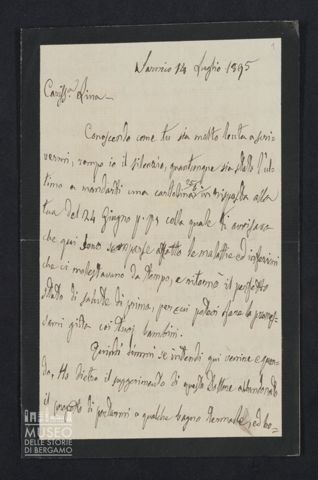 1
Sarnico 14 Luglio 1895
Cariss.ª Lina
Conoscendo come tu sia molto lenta a scri-
vermi, rompo io il silenzio, quantunque sia stato l'ul-
timo a mandarti una cartolina in risposta alla
tua del 24 Giugno p.p. colla quale ti avvisava
che qui sono scomparse affatto le malattie ed
che ci molestavano da tempo, e ritornò il perfetto
stato di salute di prima, per cui potevi fare la promes-
sami gita coi tuoi bambini.
Quindi dimmi se intendi qui venire e quan-
do. Ho dietro il suggerimento di questo Dottore abbandonato
il progetto di portarmi a qualche bagno termale, ed ho=
MUSEO
DELLE STORIE
DI BERGAMO